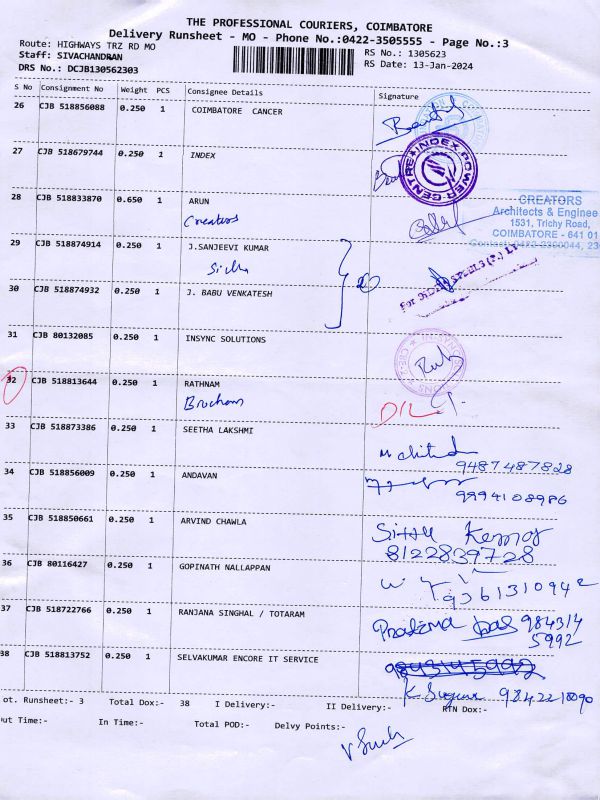 THE PROFESSIONAL COURIERS, COIMBATORE
Delivery Runsheet - MO - Phone No.:0422-3505555 - Page No.:3
Route: HIGHWAYS TRZ RD MO
RS No.: 1305623
Staff: SIVACHANDRAN
RS Date: 13-Jan-2024
DRS No.: DCJB130562303
S No Consignment No Weight PCS Consignee Details Signature
26 CJB 518856088 0.250 1 COIMBATORE CANCER
27 CJB 518679744 0.250 1 INDEX
CENTRE INDEX POWER
28 CJB 518833870 0.650 1 ARUN
Creators
CREATORS
Architects & Enginee
1531, Trichy Road,
COIMBATORE - 641 01
29 CJB 518874914 0.250 1 J.SANJEEVI KUMAR
30 CJB 518874932 1 0.250 J. BABU VENKATESH
31 CJB 80132085 0.250 1 INSYNC SOLUTIONS
32 CJB 518813644 0.250 1 RATHNAM
D/L
33 CJB 518873386 0.250 1 SEETHA LAKSHMI
9487487828
34 CJB 518856009 0.250 1 ANDAVAN
9994108986
35 CJB 518850661 0.250 1 ARVIND CHAWLA
8122839728
36 CJB 80116427 0.250 1 GOPINATH NALLAPPAN
9361310942
37 CJB 518722766 0.250 1 RANJANA SINGHAL / TOTARAM
984314
5992
38 CJB 518813752 0.250 1 SELVAKUMAR ENCORE IT SERVICE
ot. Runsheet:- 3 Total Dox:- 38 I Delivery:- II Delivery:- RTN Dox:-
ut Time:- In Time:- Total POD:- Delvy Points:-